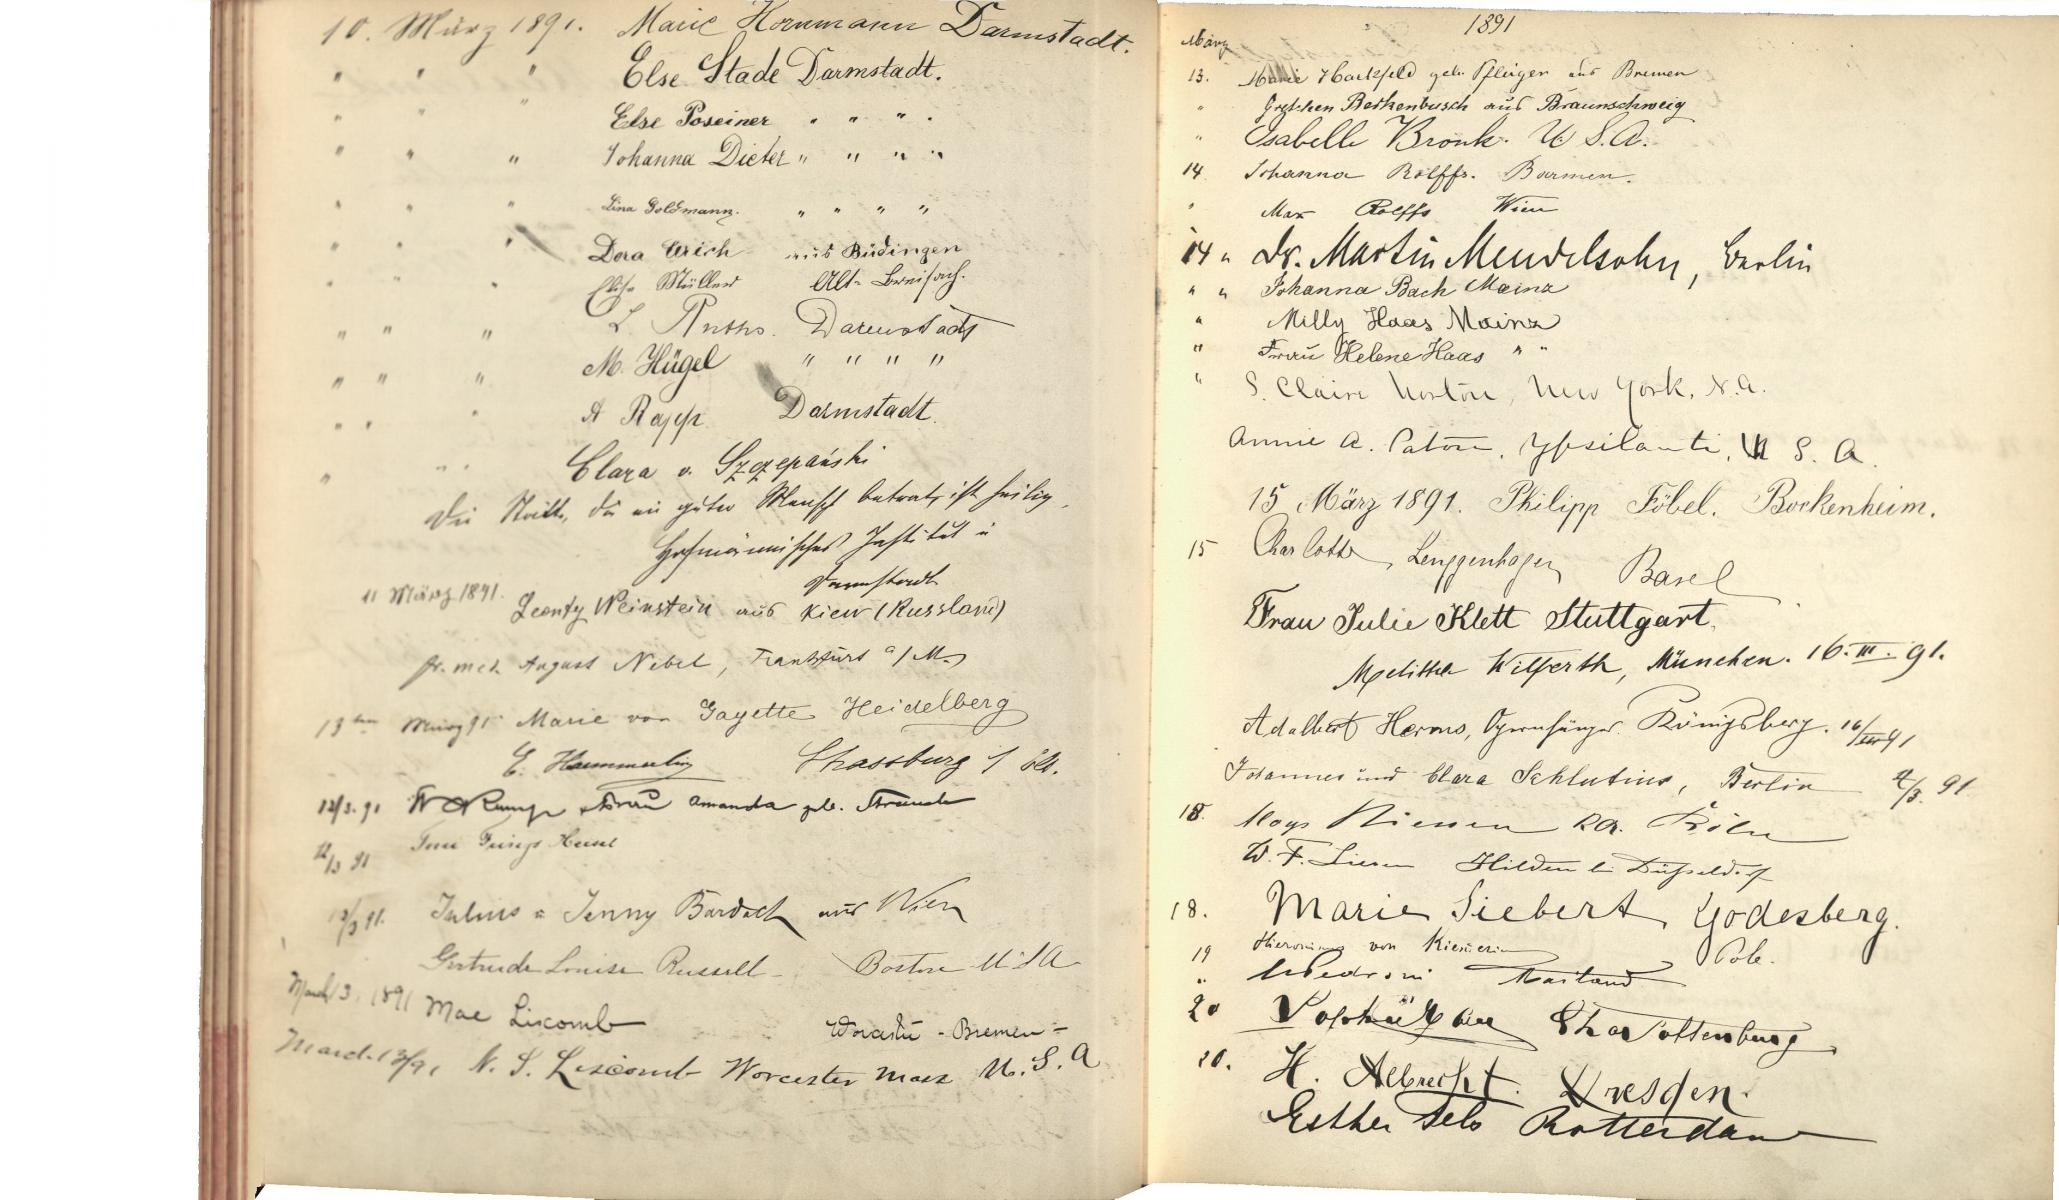 10. März 1891. Marie Hornmann Darmstadt.
" " " Else Stade Darmstadt.
" " " Else Poseiner " " " "
" " " Johanna Dieter " " " "
" " " Lina Goldmann. " " " "
" " " Dora aus Büdingen
" " " Elise Müller Alt-
" " " L. Darmstadt
" " " M. Hügel " " " "
" " " A Rapp Darmstadt.
" " " Clara v. Szczepański
Die Stätte, die ein guter Mensch betrat, ist heilig.
Institut
Darmstadt
11 März 1891. Leonty Weinstein aus Kiew (Russland)
Dr. med. August Nebel, Frankfurt a/M.
13 März 91 Marie von Gayette Heidelberg
E. Haemmerlin Strassburg i/ Els.
12/3. 91 Frau Amanda geb.
12/3 91
12/3 91. Julius u Jenny Bardach aus Wien
Gertrude Louise Russell - Boston U S A
March 3, 1891 Mae Liscomb - Bremen -
March 13/91 N. S. Liscomb Worcester Mass U. S. A
1891
März
13. Marie Hackfeld geb. Pflüger aus Bremen
" Gretchen Berkenbusch aus Braunschweig
" Isabelle Bronk. U. S. A.
14 Johanna Rolffs. Barmen.
" Max Rolffs Wien
14 " Dr. Martin Mendelsohn, Berlin
" " Johanna Bach Mainz
" Milly Haas Mainz
" Frau Helene Haas " "
" S. Claire Norton, New York, N.A.
Annie A. Paton, Ypsilanti, U S. A.
15 März 1891. Philipp Föbel. Bockenheim.
15 Charlotte Lenggenhager, Basel
Frau Julie Klett Stuttgart.
Melitta Wilferth, München. 16. III. 91.
Adalbert Herms, Opernsänger Königsberg. 16/III 91
Johannes und Clara Schlutius, Berlin 91
18. Aloys Köln
W. F. Hilden b. Düsseldorf
18. Marie Siebert, Godesberg.
19 Hieronimus von Pole.
" Mailand
20 Charlottenburg
20. H. Albrecht. Dresden.
Esther Rotterdam